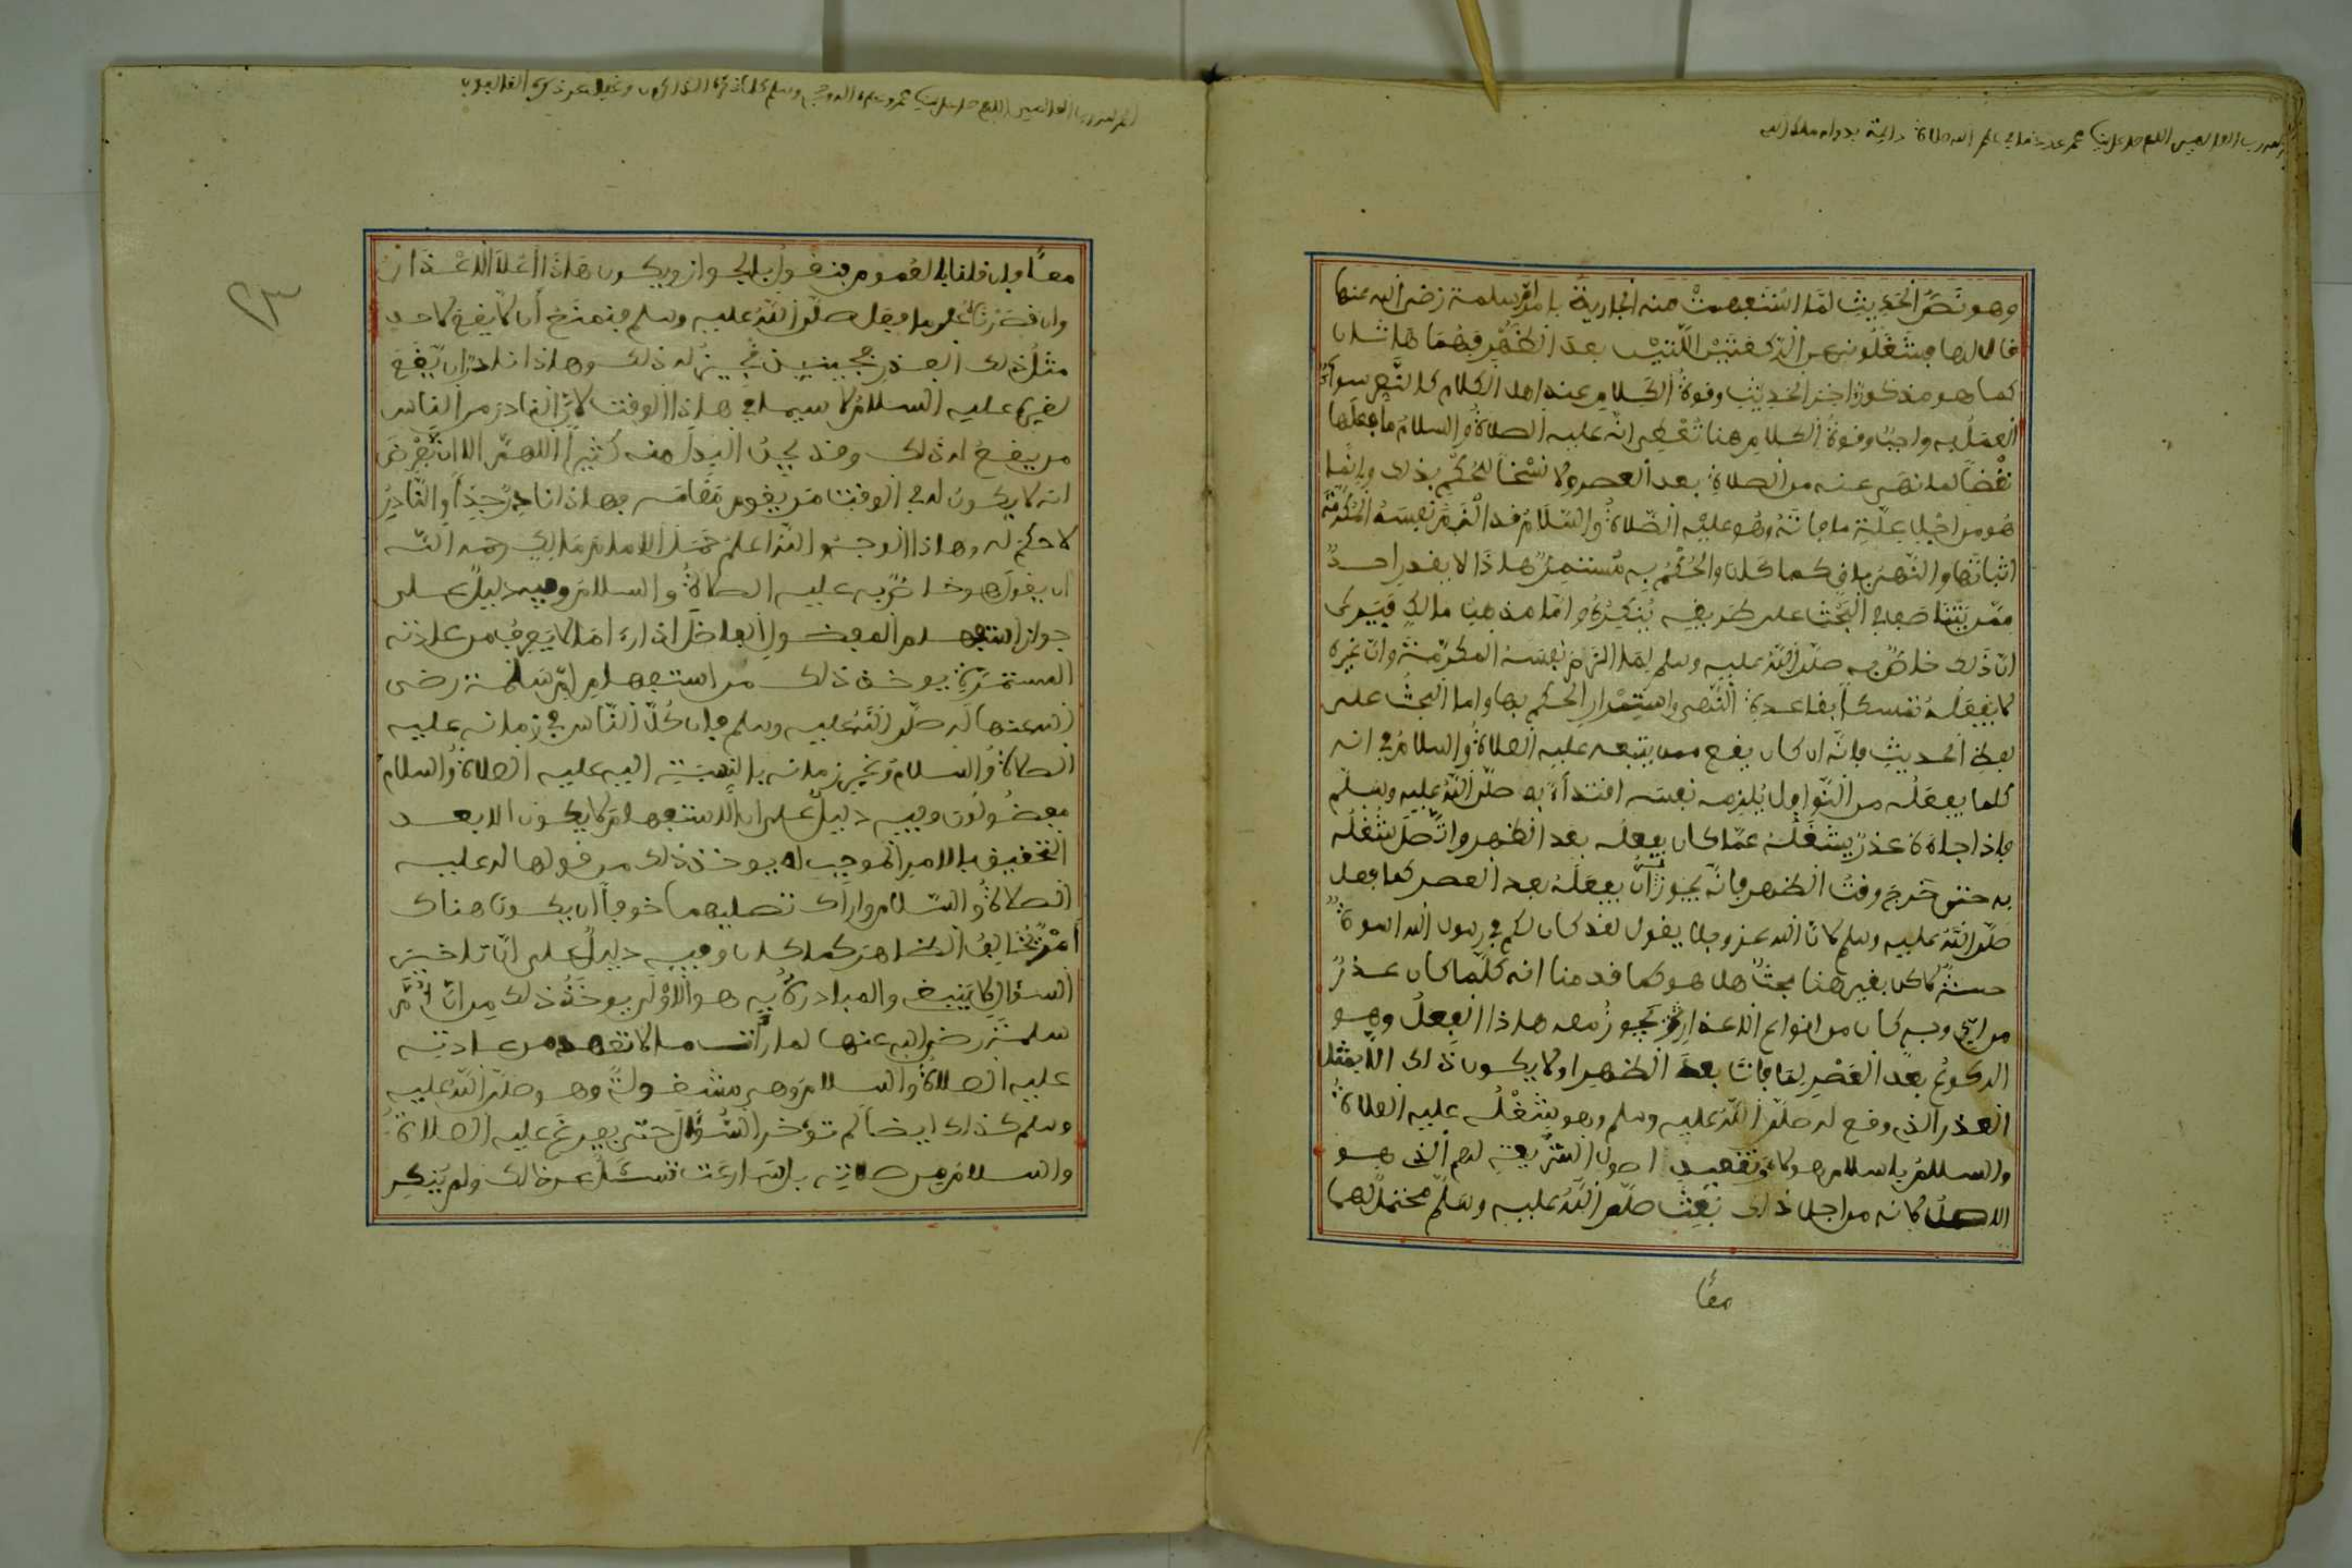 الحمد لله رب العالمين اللهم صل على سيدنا محمد عدد ما في علم الله صلاة دائمة بدوام ملك الله
وهو نَصُّ الحَدِيثِ لمَّا اسْتَفهمتْ منه الجارية بامر امّ سلمة رضى الله عنها
قال لها فشغلونى عن الركعتَيْن اللّتيْن بعدَ الظهْرِ فهُمَا هَاتَان
كما هو مذكورٌ اخرَ الحَديثِ وقوةُ الكلامِ عند اهل الكلام كالنّصِ سواءٌ
العمَلُ به واجبٌ وقوةُ الكلامِ هنا تُعْطِى انّه عليه الصلاةُ والسلامُ ما فعلَها
نقْضًا لما نهَى عنه من الصلاةِ بعد العصر ولا نسْخاً لحُكمٍ بذلك وإنّما
هُو من اجْلِ عِلّةِ ما فاتَهُ وهُو عليْه الصّلاةُ والسّلَامُ قد الْزمَ نفسَهُ المُكرّمَةَ
اثباتَها والنّهىُ باقٍ كما كان والحُكْمُ به مُستَمِرٌّ هذَا لا يقدر احدٌ
ممّن يَتَناصَفُ في البَحْثِ على طَريقِه يُنكِرُهُ وامّا مذهبُ مالكٍ فيَرى
انّ ذَلك خاصٌّ به صلّى اللّهُ عليه وسلم لِمَا الزَمَ نفسَهُ المكرّمَةَ وانّ غيرَه
لا يَفعَلُهُ تمَسّكاً بقاعدةِ النّهىِ واستِمْرارِ الحُكمِ بها واما البَحثُ على
لفظِ الحديثِ فانّه ان كان يقع ممن يتبعه عليه الصلاةُ والسلامُ في انه
كلما يفعَلُه من النّوافِل يُلزِمه نفسَه اقتداءً به صلّى اللّهُ عليه وسلّم
فاذا جاءَهُ عذرٌ يشغَلُهُ عمّا كان يفعلُه بعَد الظهر واتّصَلَ شُغْلُه
به حتى خَرجَ وقتُ الظهر فانّه يجُوزُ أن يفعَلَهُ بعد العصر كما فعل
صلّى اللّهُ عليه وسلم لانّ الله عز وجل يقول لقد كان لكم في رسول الله اسوةٌ
حسنةٌ لاكن بقى هنا بحثٌ هل هو كما قدمنا انه كلّما كان عذرٌ
من ايّ وجهٍ كان من انواعِ الاعذارِ يجُوزُ معه هذا الفِعلُ وهو
الركوعُ بعدَ العَصْرِ لِمَا فاتَ بعدَ الظهرِ او لا يكون ذلك الّا بمثل
العذر الذي وقع له صلّى اللّهُ عليه وسلم وهو شُغْلُه عليه الصلاةُ
والسلامُ باسلامِ هولاءِ وتقعيد اصول الشّريعةِ لهم الّذى هو
الاصلُ لانه من اجل ذلك بُعِثَ صلّى اللّهُ عليه وسَلّم محتملٌ لهما
معًا
الحمد لله رب العالمين اللهم صل على سيدنا محمد وعلى اله وصحبه وسلم كلما ذكره الذاكرون وغفل عن ذكره الغافلون
٢٣
معًا فان قلنا بالعُموم فنقولُ بالجواز ويكون هَذا اعْلاَ الاعْذار
وان قصَرْنَاهُ على ما فعل صلّى اللّهُ عليه وسلم فنمنَعُ أن لا يَقعَ لاحد
مثلُ ذلك العذرِ فحينئذٍ نُجيزُ له ذلك وهذا نادرٌ ان يّقَعَ
لغيرِه عليه السلامُ لا سيما في هذا الوقت لانّ النادرَ من الناس
من يقعُ له ذلك وقد يجِدُ البدلَ منه كثيراً اللهمّ الا ان يُّفْرَضَ
انه لا يكونُ له في الوقتِ مَن يقوم مَقامَه فهذا نادِرٌ جِدّاً والنّادِرُ
لا حكمَ له وهذا الوجهُ واللّهُ اعلمُ حَمَلَ الامامَ مَالكٍ رحمه اللّه
ان يقولَ هو خاصٌّ به عليه الصلاةُ والسلامُ وفيه دليلٌ على
جواز استفهام المفضولِ الفاضلَ اذا رءَا مَا لا يَعرِفُ من عادَتِه
المستمرّةِ يوخذ ذلك من استفهامِ امّ سَلَمة رضى
الله عنها له صلّى اللّهُ عليه وسلم فان كُلّ النّاسِ في زمانه عليه
الصلاةُ والسلامُ وغيرِ زمانه بالنسبَةِ اليه عليه الصلاةُ والسلامُ
مفضُولُون وفيه دليلٌ على انّ الاستفهامَ لا يكون الا بعد
التحقيقِ بالامرِ الموجِب له يوخذ ذلك من قولها له عليه
الصلاةُ والسّلامُ واراك تصليهما خوفاً ان يكونَ هناك
أمْرٌ يُخالِفُ الظاهرَ كما كان وفيه دليلٌ على انّ تاخيرَ
السؤالِ لا يَنبغى والمبادرةُ به هو الأوْلَى يوخَذُ ذلك مِن انّ أُمَّ
سلمةَ رضى الله عنها لما رأت ما لا تعهد من عادتِه
عليه الصلاةُ والسلامُ وهى مشغولةٌ وهو صلّى اللّهُ عليه
وسلم كذلك ايضاً لم تؤخر السُّؤالَ حتى يفرغَ عليه الصلاةُ
والسلامُ من صلاتِه بل ارسَلَت تسْئَلُ عن ذالك ولم يُنكِر